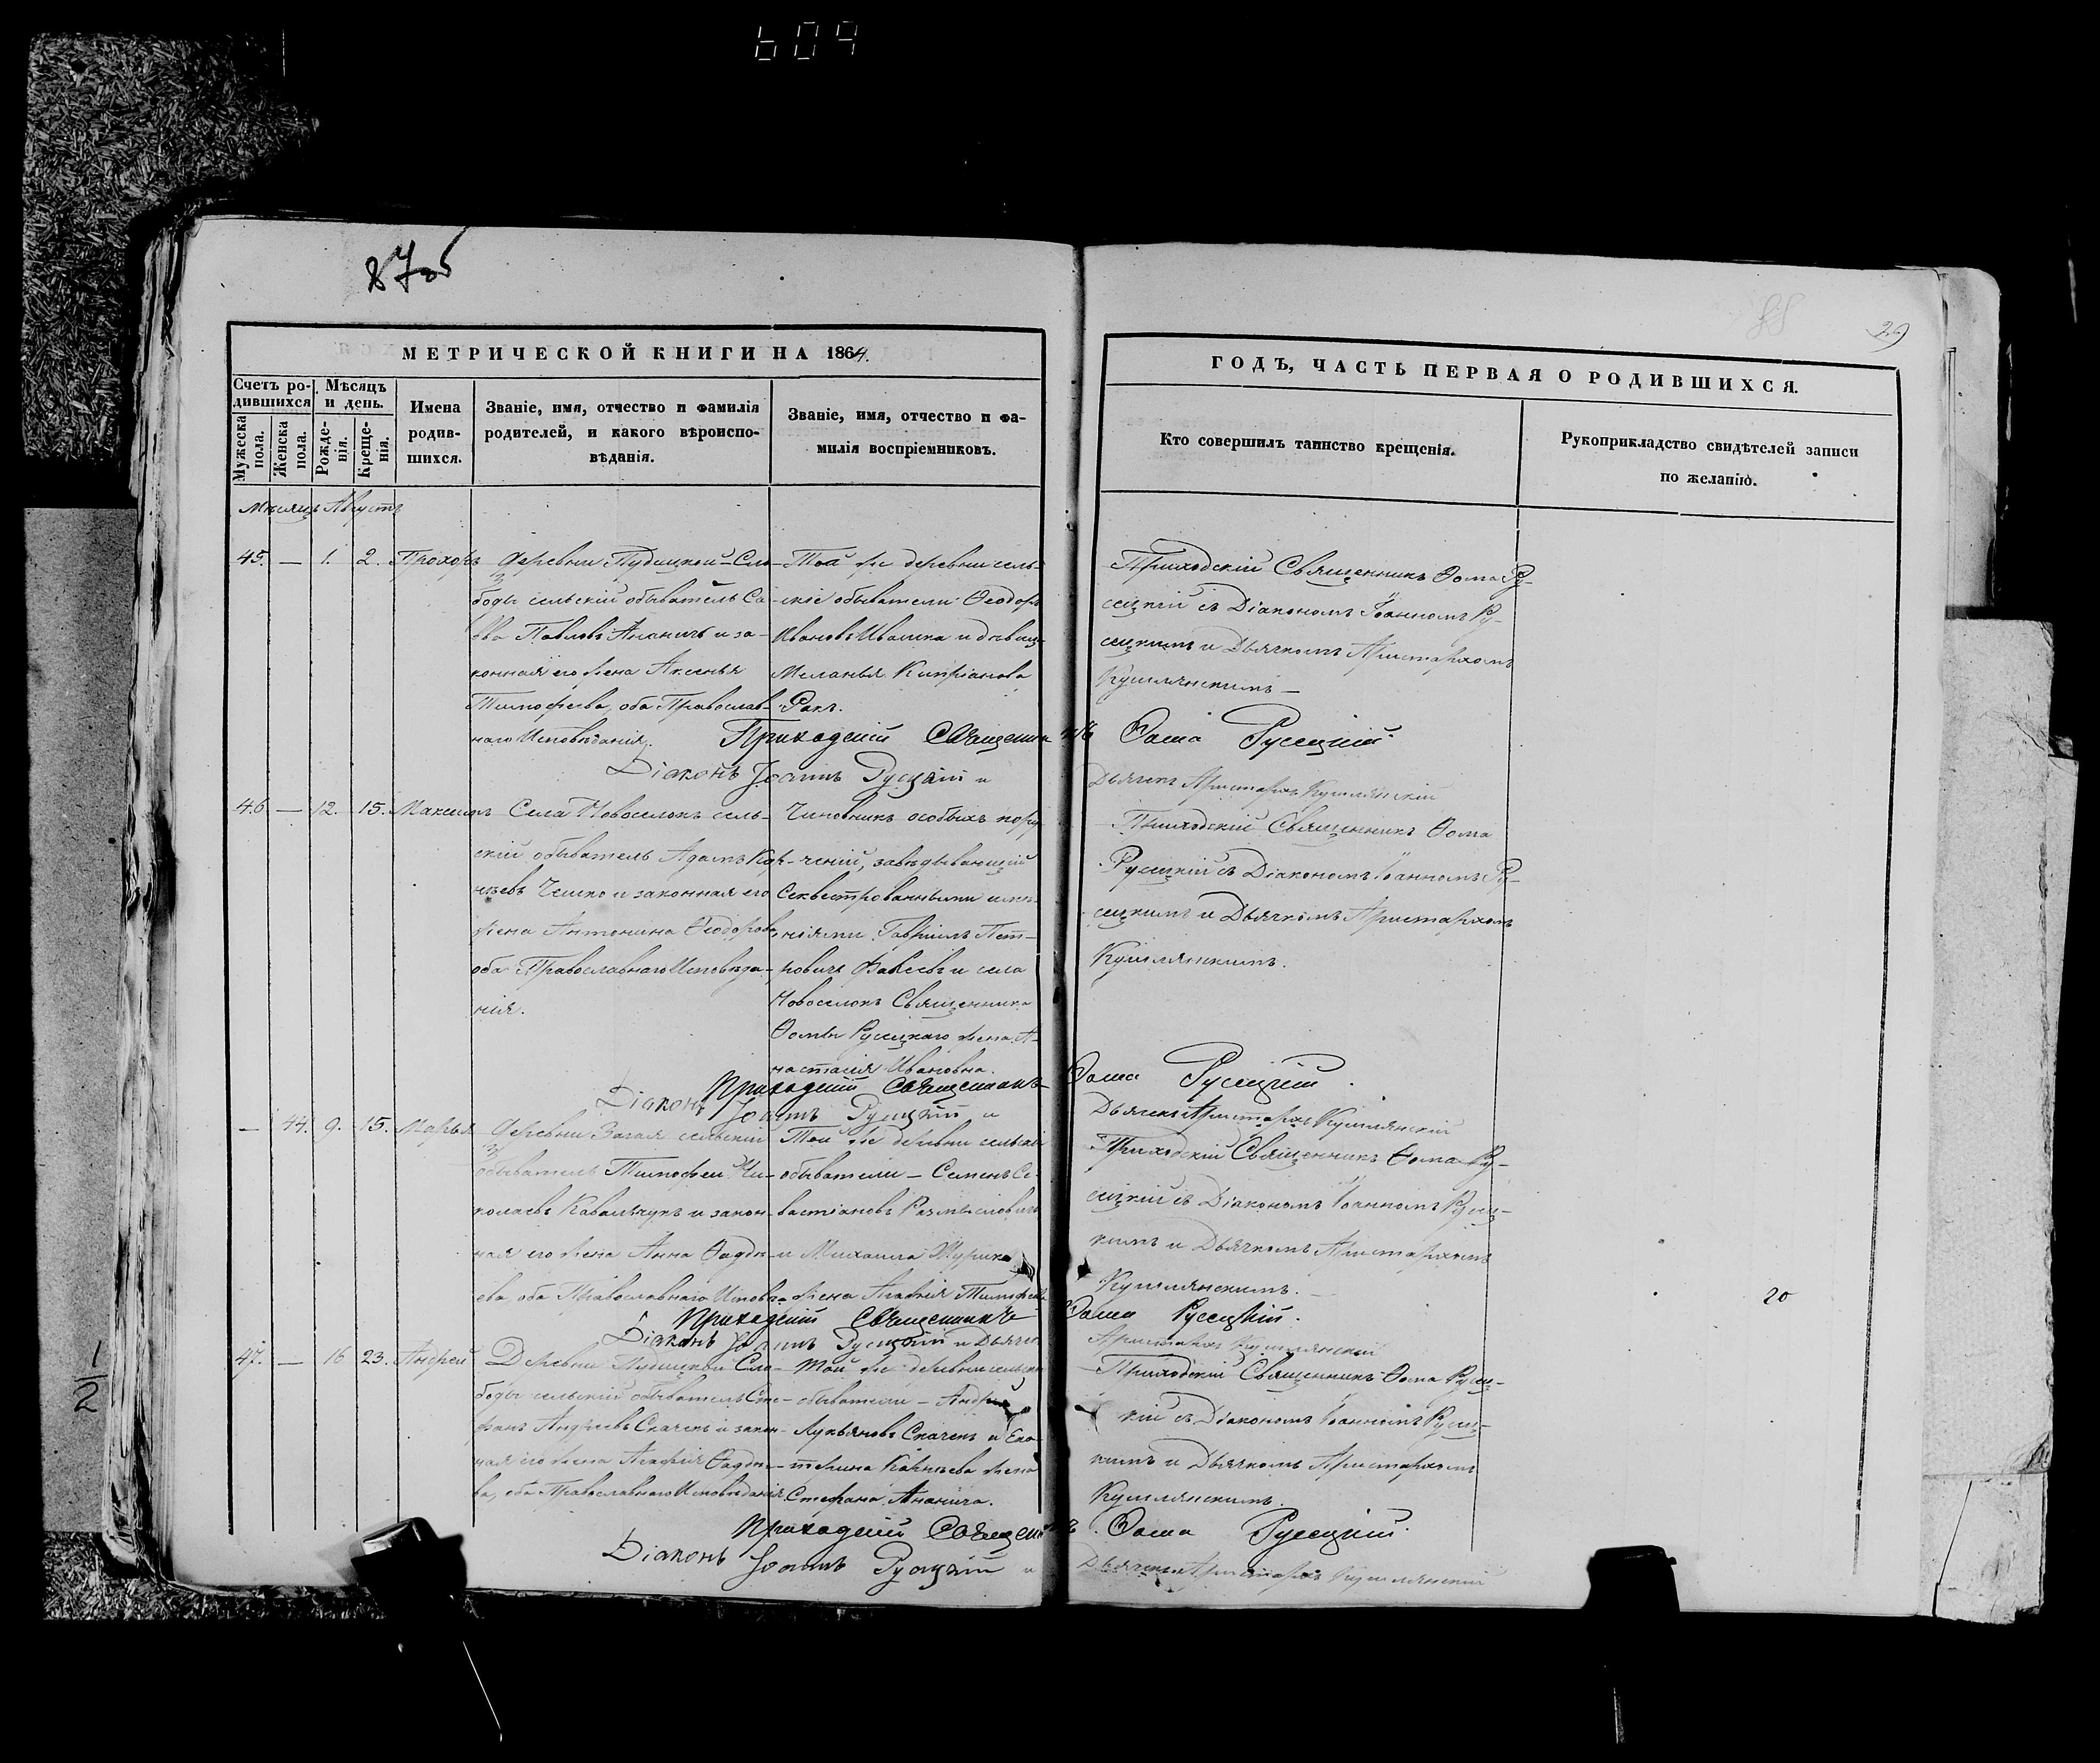 609
29
МЕТРИЧЕСКОЙ КНИГИ НА 1864.
Счетъ ро-
дившихся
Мужеска
пола.
Женска
пола.
Мѣсяцъ
и день.
Рожде-
нія.
Креще-
нія.
Имена
родив-
шихся.
Званіе, имя, отчество и фамилія
родителей, и какого вѣроиспо-
вѣданія.
Званіе, имя, отчество и фа-
милія воспріемниковъ.
ГОДЪ, ЧАСТЬ ПЕРВАЯ О РОДИВШИХСЯ.
Кто совершилъ таинство крещенія.
Рукоприкладство свидѣтелей записи
по желанію.
Мѣсяцъ Августъ
45. — 1. 2. Прохоръ
Деревни Пудицкой-Сло-
боды сельскій обыватель Са-
вва Павловъ Ананичъ и за-
конная его жена Аксенья
Тимофеева, оба Православ-
наго Исповѣданія.
Той же деревни сель-
скіе обыватели Ѳеодоръ
Ивановъ Ивашка и дѣвица
Меланья Кипріанова
Ракъ.
Приходскій Священникъ Ѳома Ру-
сецкій съ Діакономъ Іоанномъ Ру-
сецкимъ и Дьячкомъ Аристархомъ
Кушлянскимъ —
Приходскій Священникъ Ѳома Русецкій.
Діаконъ Іоаннъ Русецкій и
Дьячекъ Аристархъ Кушлянскій
46. — 12. 15. Максимъ
Села Новоселокъ сель-
скій обыватель Адамъ Кор-
нѣевъ Чешко и законная его
жена Антонина Ѳеодорова,
оба Православнаго Исповѣда-
нія.
Чиновникъ особыхъ пору-
ченій, завѣдывающій
Секвестрованными имѣ-
ніями Гавріилъ Пет-
ровичъ Фавеевъ и села
Новоселокъ Священника
Ѳомы Русецкаго жена А-
настасія Ивановна.
Приходскій Священникъ Ѳома
Русецкій съ Діакономъ Іоанномъ Ру-
сецкимъ и Дьячкомъ Аристархомъ
Кушлянскимъ.
Приходскій Священникъ Ѳома Русецкій.
Діаконъ Іоаннъ Русецкій и
Дьячекъ Аристархъ Кушлянскій
— 44. 9. 15. Марья
Деревни сельскій
обыватель Тимофей Ни-
колаевъ Кавалчукъ и закон-
ная его жена Анна Ѳадде-
ева, оба Православнаго Исповѣ.
Той же деревни сельскіе
обыватели — Семенъ Се-
вастіановъ Размысловичъ
и Михаила
жена Агафія Тимофеева
Приходскій Священникъ Ѳома Ру-
сецкій съ Діакономъ Іоанномъ Русец-
кимъ и Дьячкомъ Аристархомъ
Кушлянскимъ.
20
Приходскій Священникъ Ѳома Русецкій.
Діаконъ Іоаннъ Русецкій и Дьячекъ
Аристархъ Кушлянскій
47. — 16 23. Андрей
Деревни Пудицкой Сло-
боды сельскій обыватель Сте-
фанъ Андреевъ Скачекъ и закон-
ная его жена Агафія Ѳаддее-
ва, оба Православнаго Исповѣданія.
Той же деревни сельскіе
обыватели — Андрей
Лукьяновъ Скачекъ и Ека-
терина Карнѣева жена
Стефана Ананича.
Приходскій Священникъ Ѳома Русец-
кій съ Діакономъ Іоанномъ Русец-
кимъ и Дьячкомъ Аристархомъ
Кушлянскимъ.
Приходскій Священникъ Ѳома Русецкій.
Діаконъ Іоаннъ Русецкій и
Дьячекъ Аристархъ Кушлянскій
1
2